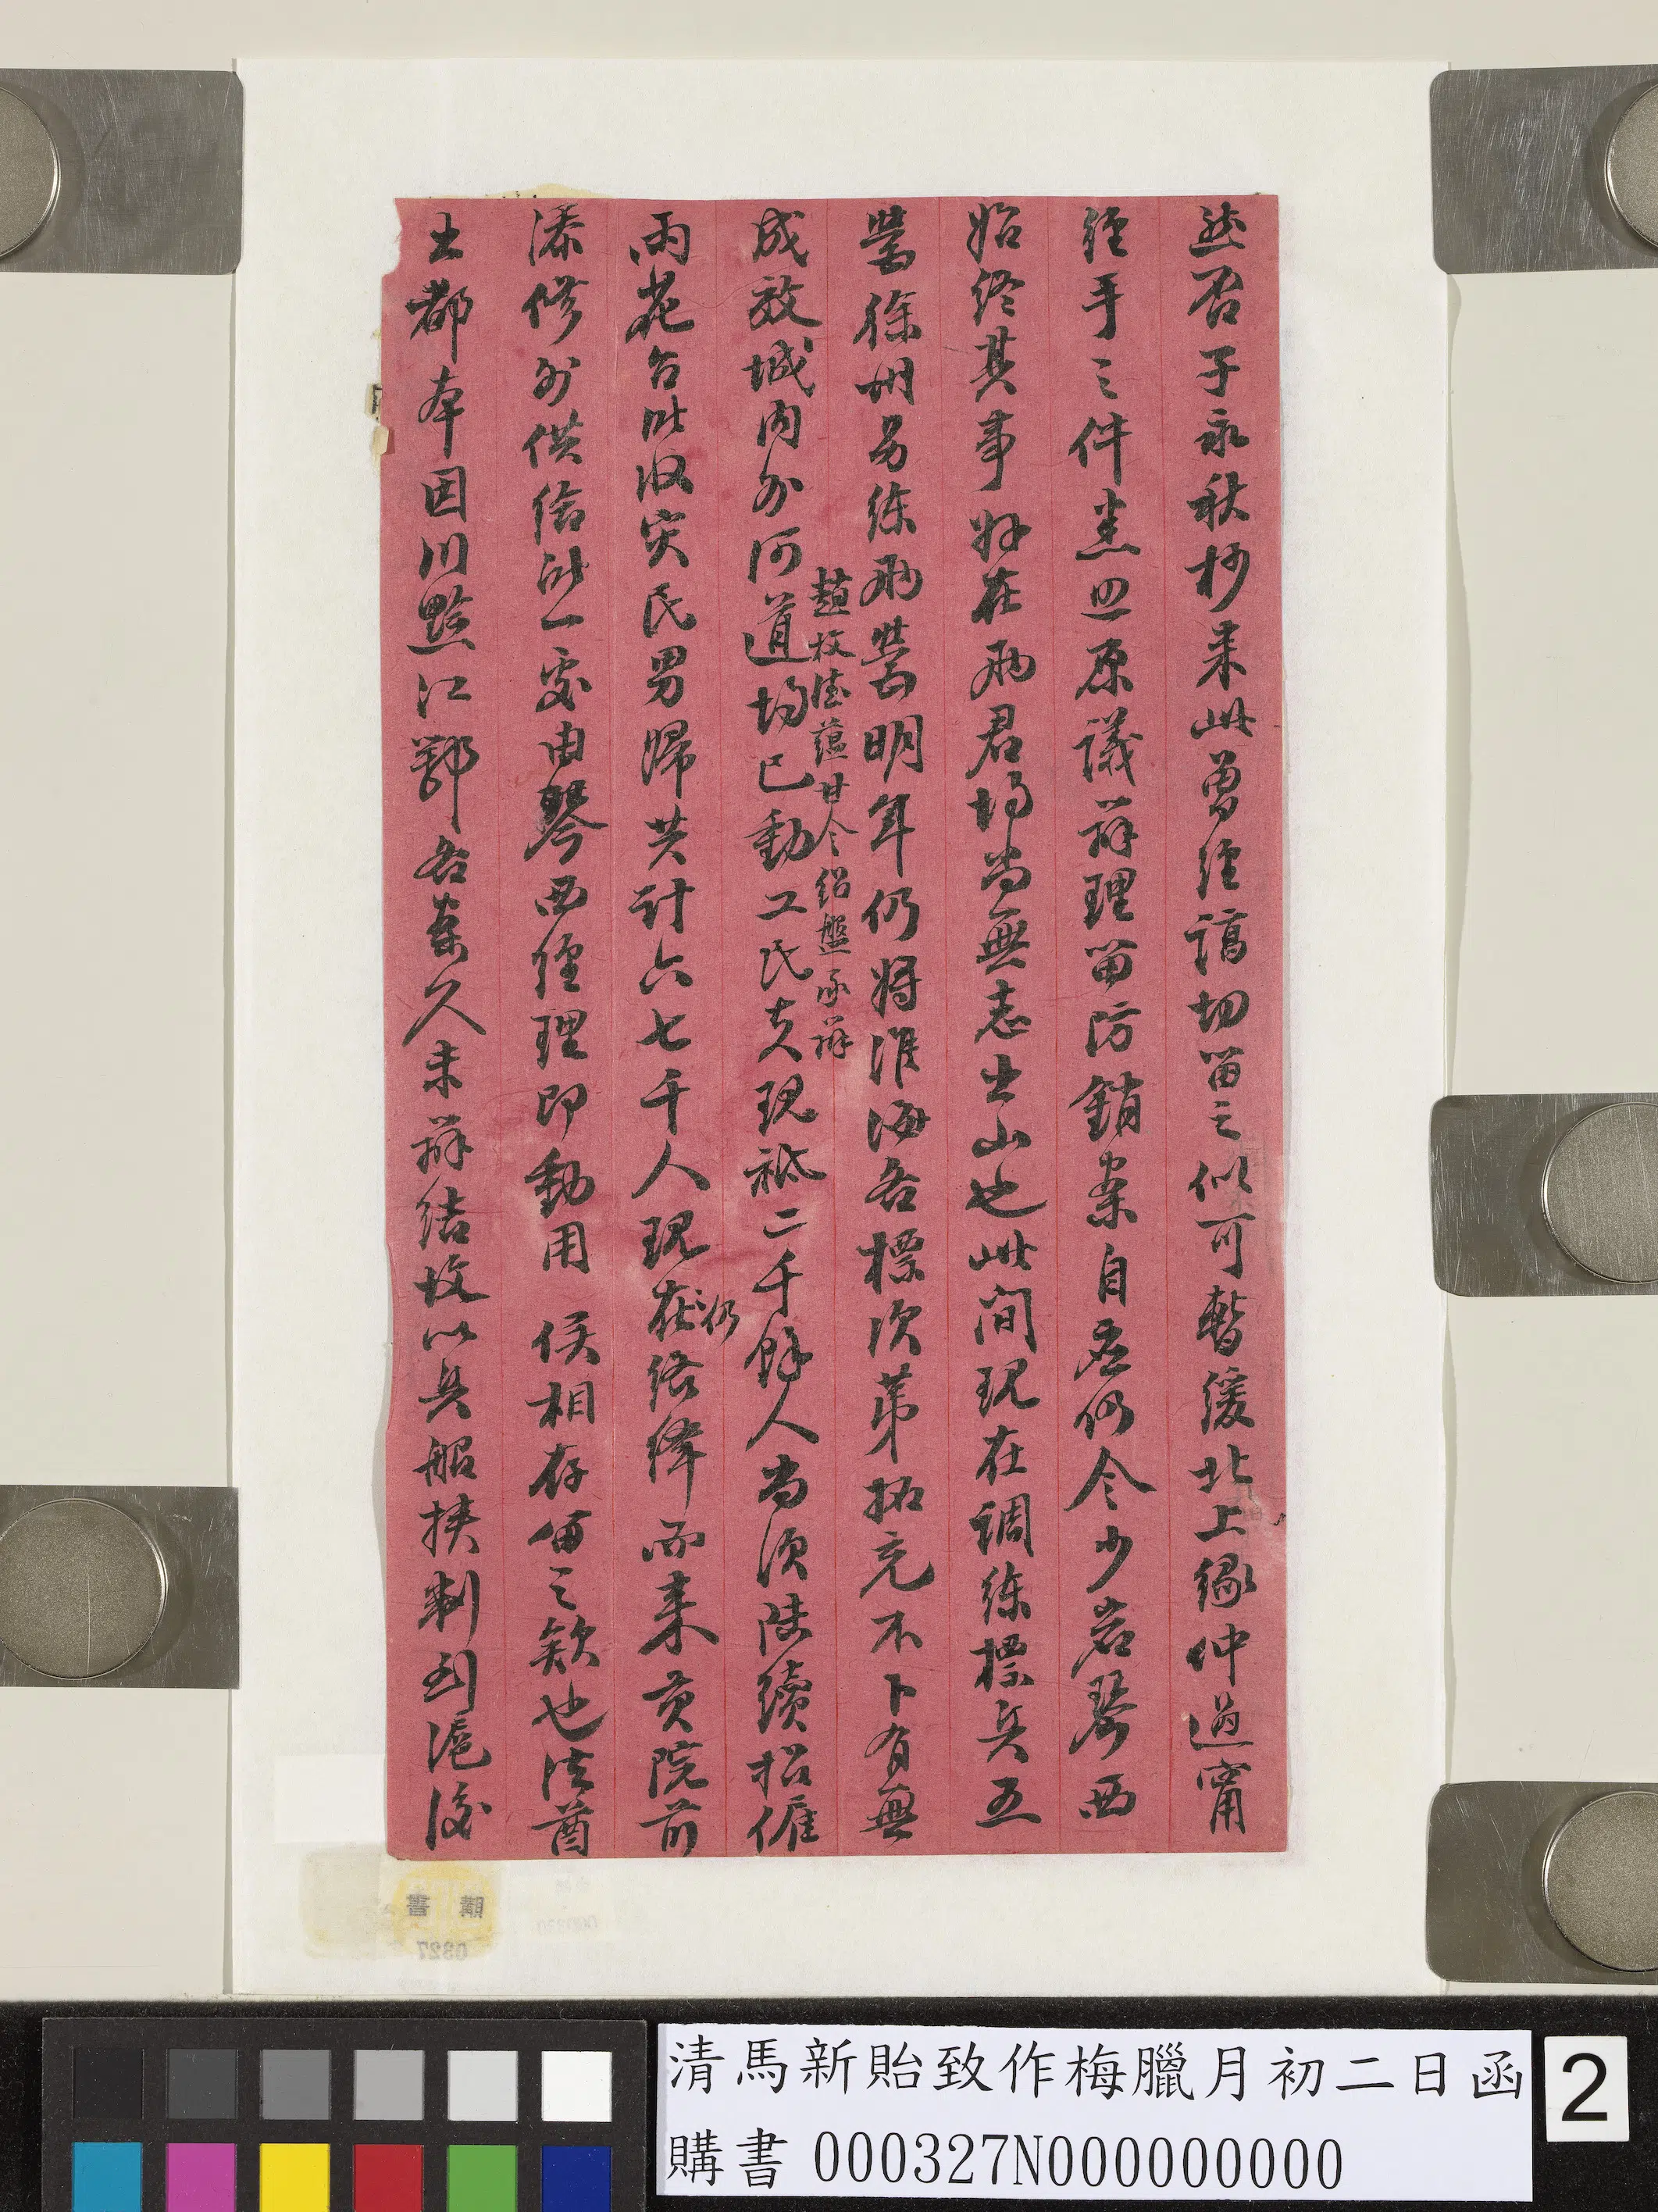 然否子永秋杪来此曾經諄切留之似可暫緩北上緣仲過甯
經手之件悉照原議辦理留防銷案自應仍令少岩琴西
始終其事好在兩君均尚無志出山也此間現在調練標兵五
營徐州另練兩營明年仍將淮海各標次第拓充不卜有無
成效城内外河道均已動工民夫現祇二千餘人尚須陸續招僱
趙枚 蘊甘令紹盤承辦
雨花台所收灾民男婦共計六七千人現在仍絡繹而来貢院前
添修外供給所一處由琴西經理即動用 侯相存留之欵也法酋
出都本因川黔江鄂各案久未辦結故以兵船挾制到滬後
清馬新貽致作梅臘月初二日函
購書 000327N000000000
2
購書
0327